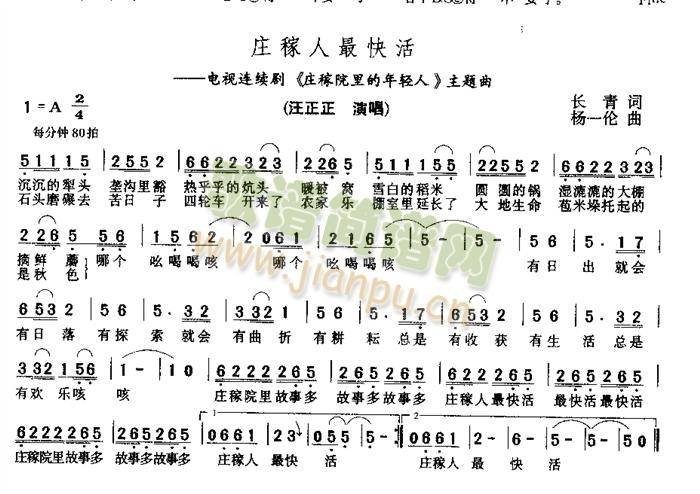 庄稼人最快活
——电视连续剧《庄稼院里的年轻人》主题曲
1=A 2/4
(汪正正 演唱)
长青 词
杨一伦 曲
每分钟80拍
51115 2552 6622323 2265 51115 22552 6622323
沉沉的犁头 垄沟里豁 热乎乎的炕头 暖被窝 雪白的稻米 圆圆的锅 湿漉漉的大棚
石头磨碾去 苦日子 四轮车开来了 农家乐 棚室里延长了 大地生命 苞米垛托起的
2265 56 1612 2061 2165 5- 5- 56 5. 17
摘鲜蘑 哪个 吆喝喝咳 哪个 吆喝喝咳 有日出就会
是秋色
6532 12 56 5.32 12 56 5.17 6532 12 56 5.32
有日落有探索就会有曲折有耕耘总是有收获有生活总是
332 156 1- 10 6222265 265265 6222265 265265
有欢乐咳 咳 庄稼院里故事多 故事多故事多 庄稼人人最快活 最快活最快活
6222265 265265 0661 23 055 5- 0661 26 5- 5- 50
庄稼院里故事多 故事多故事多 庄稼人最快活 庄稼人最快活
歌谱简谱网
www.jianpu.cn